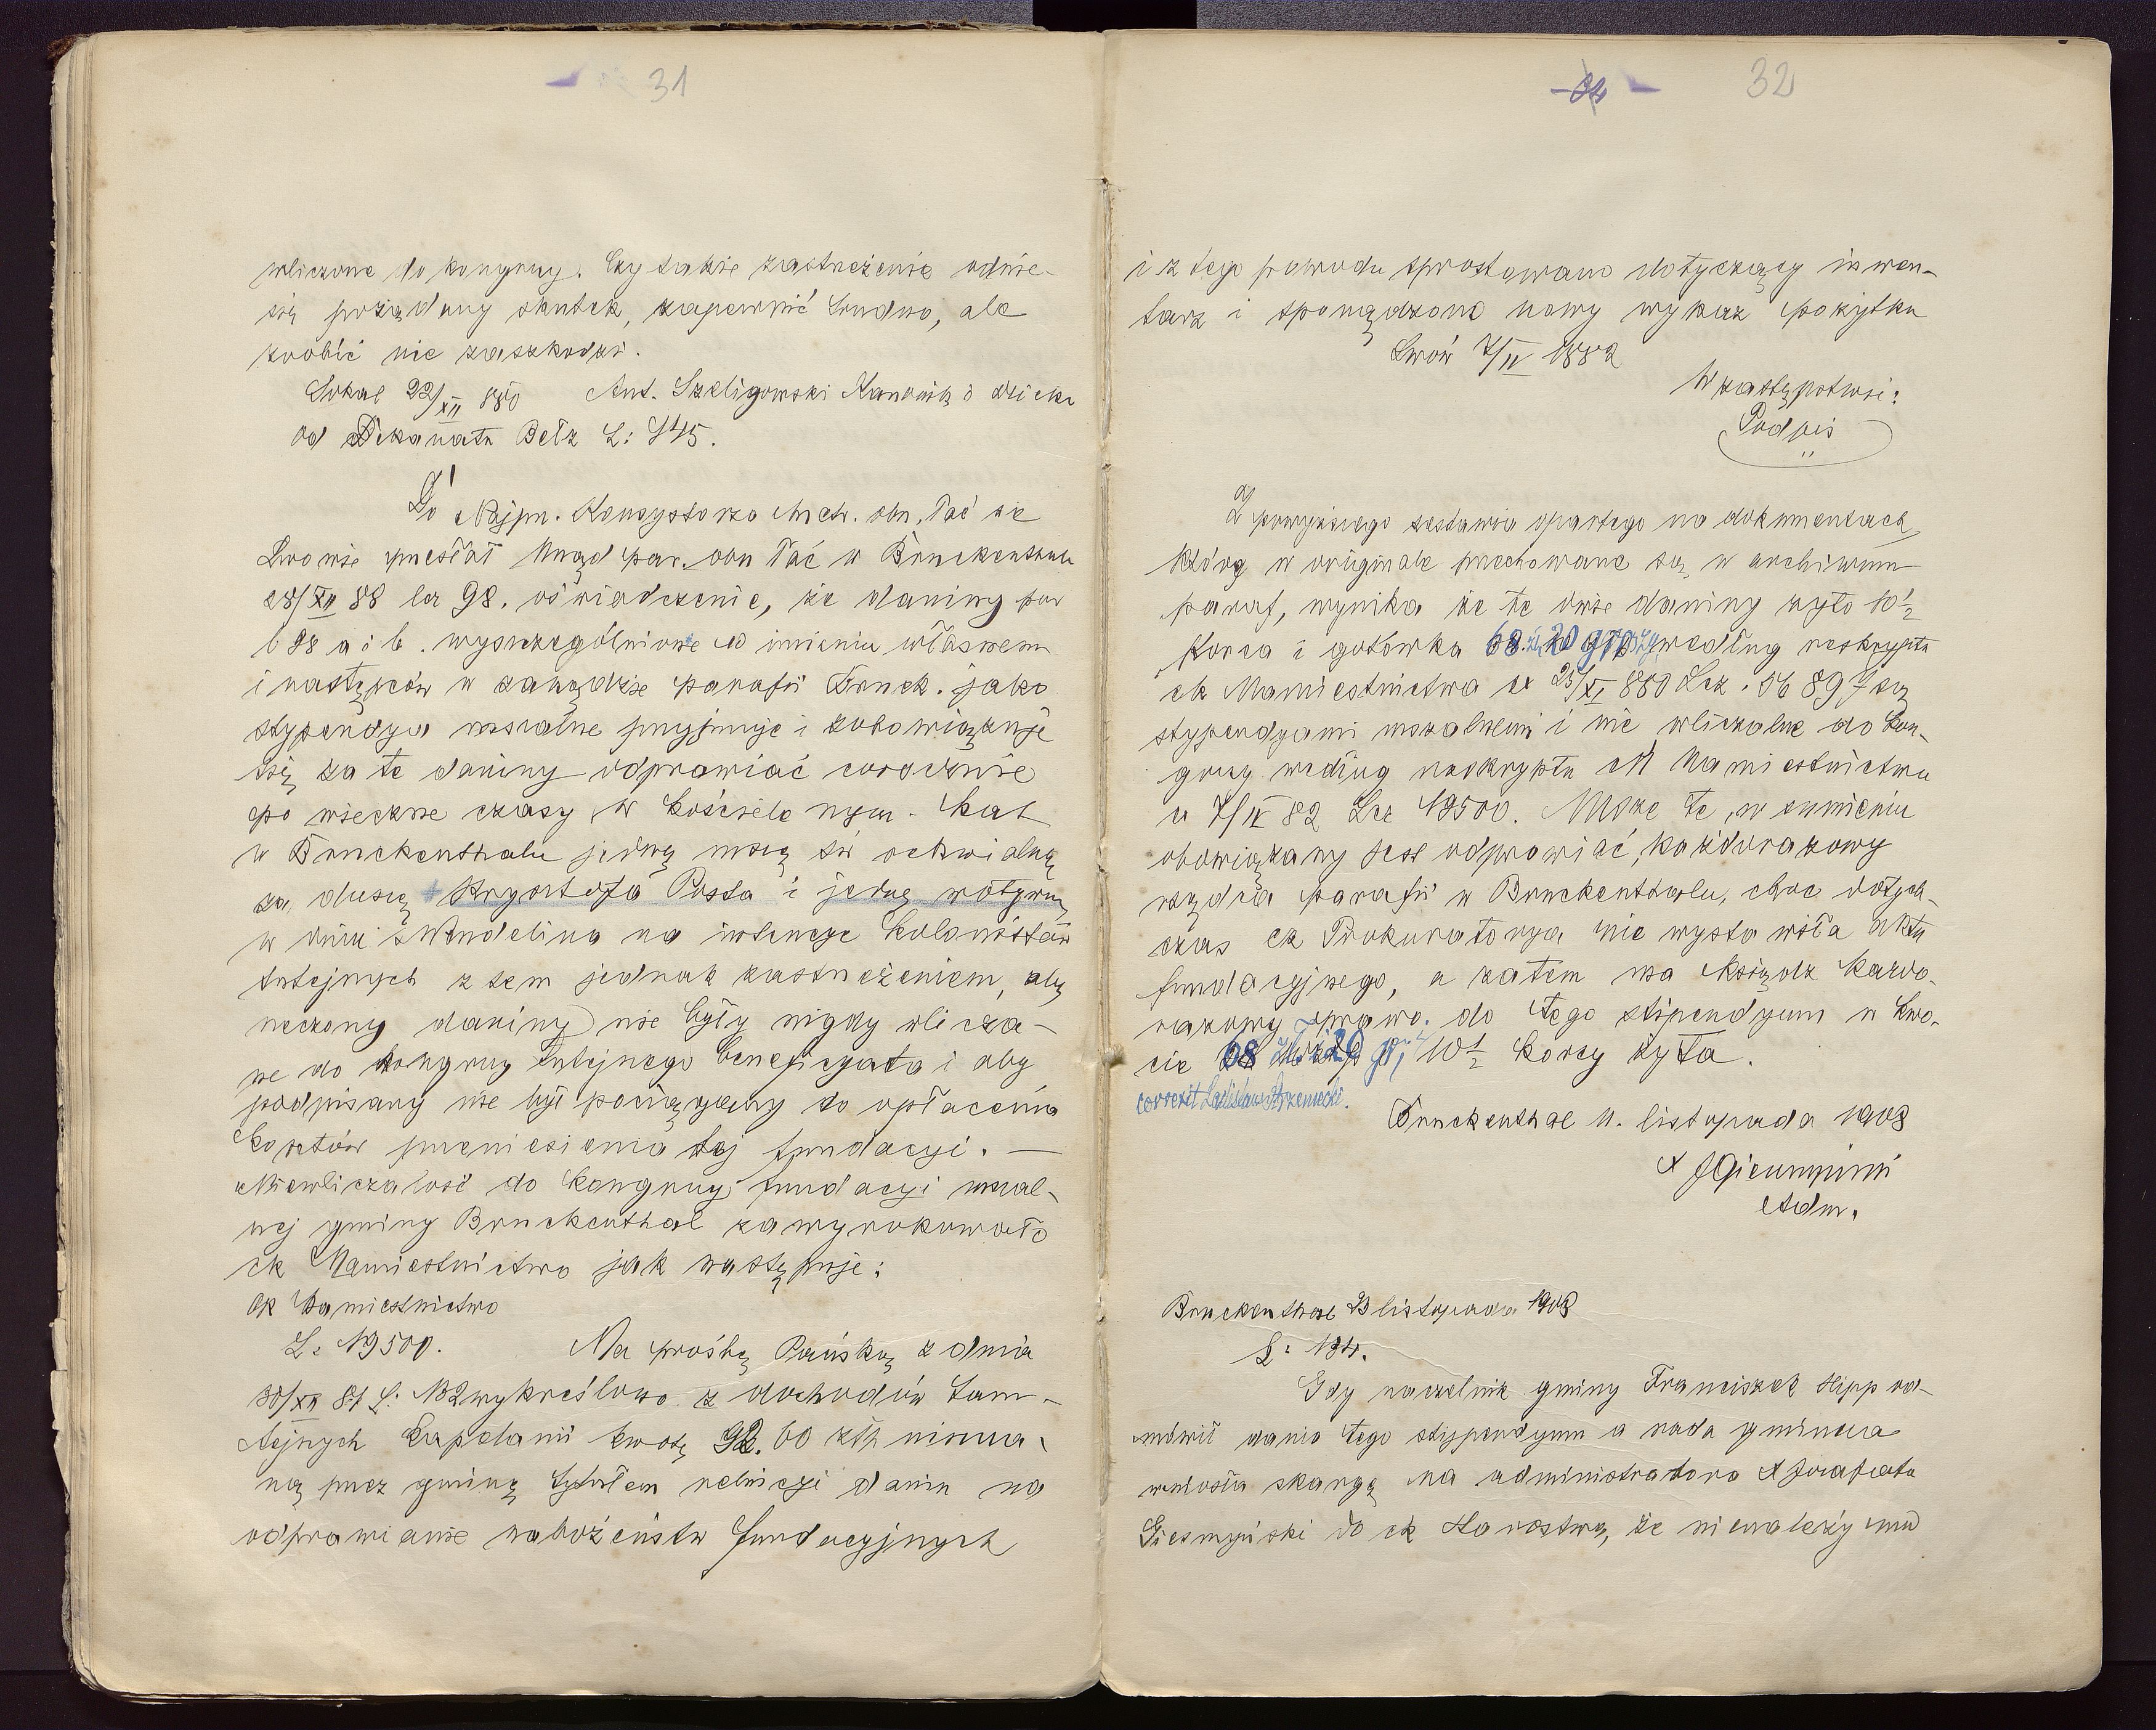 31
wliczone do kongruy. Czy takie zastrzeżenie odnie-
sie pożądany skutek, zapewnić trudno, ale
zrobić nie zaszkodzi.
Sokal 22/XII 880 Ant. Szeligowski Kanonik i dziek
Od Dekanatu Bełz L: 445.
Do Najprz. Konsystorza Metr. obrz. łać we
Lwowie przesłał Urząd par. obrz łać w Bruckenthalu
28/XII 88 lcz 98. oświadczenie, że daniny pod
l 98 a i b. wyszczególnione w imieniu własnem
i następców w zarządzie parafii Bruck. jako
stypendya mszalne przyjmuje i zobowiązuje
się za te daniny odprawiać corocznie
po wieczne czasy w kościele rzym. kat
w Bruckenthalu jedną mszę św rekwialną
za duszę Krysztofa Posta i jedną wotywną
w dniu ś Wendelina na intencye kolonistów
tutejszych z tem jednak zastrzeżeniem, aby
rzeczony daniny nie były nigdy wlicza-
ne do kongruy tutejszego beneficyata i aby
podpisany nie był pociągany do opłacenia
kosztów przeniesienia tej fundacyi. —
Niewliczalość do kongruy fundacyi mszal-
nej gminy Bruckenthal zawyrokowało
ck Namiestnictwo jak następuje:
Ck Namiestnictwo
L: 19500. Na prośbę Pańską z dnia
30/XII 81 L: 132 wykreślono z dochodów tam-
tejszych kapelanii kwotę 92. 60 złp
ną przez gminę tytułem relucyi danin na
odprawianie nabożeństw fundacyjnych
32
i z tego powodu sprostowano dotyczący inwen-
tarz i sporządzono nowy wykaz pożytku
Lwów 7/IV 1882
W zastępstwie:
Podpis
Z powyższego zestawia opartego na dokumentach,
które w originale przechowane są w archiwum
paraf, wynika że te dwie daniny żyto 10½
Korca i gotówka 68 zł 20 gr według reskryptu
ck Namiestnictwa ex 25/XI 880 Lcz. 56897 są
stypendyami mszalnemi i nie wliczalne do kon-
gruy według reskryptu ck Namiestnictwa
z 7/IV 82 Lcz 19500. Msze te, w sumieniu
obowiązany jest odprawiać, każdorazowy
rządca parafii w Bruckenthalu, choc dotych-
czas ck Prokuratorya nie wystawiła aktu
fundacyjnego, a zatem ma ksiądz każdo-
razowy prawo do tego stipendyum w kwo-
cie 68 20 gr i 10½ korcy żyta.
correxit Ladislaus
Bruckenthal 11. listopada 1908
X J Giesmyński
Adm.
Bruckenthal 23 listopada 1908
L: 134.
Gdy naczelnik gminy Franciszek Hipp od-
mówił dania tego stypendyum a rada gminna
wniosła skargę na administratora X Jozafata
Giesmyński do ck Starostwa, że nienależy mu